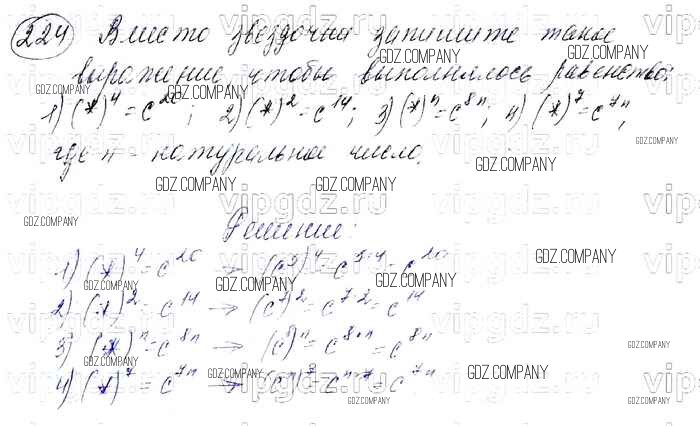 224 Вместо звездочки запишите такое
выражение, чтобы выполнялось равенство:
1) (*)⁴ = c²⁰; 2) (*)² = c¹⁴; 3) (*)ⁿ = c⁸ⁿ; 4) (*)⁷ = c⁷ⁿ,
где n - натуральное число.
Решение:
1) (*)⁴ = c²⁰ → (c⁵)⁴ = c⁵·⁴ = c²⁰
2) (*)² = c¹⁴ → (c⁷)² = c⁷·² = c¹⁴
3) (*)ⁿ = c⁸ⁿ → (c⁸)ⁿ = c⁸·ⁿ = c⁸ⁿ
4) (*)⁷ = c⁷ⁿ → (cⁿ)⁷ = cⁿ·⁷ = c⁷ⁿ
vipgdz.ru
GDZ.COMPANY